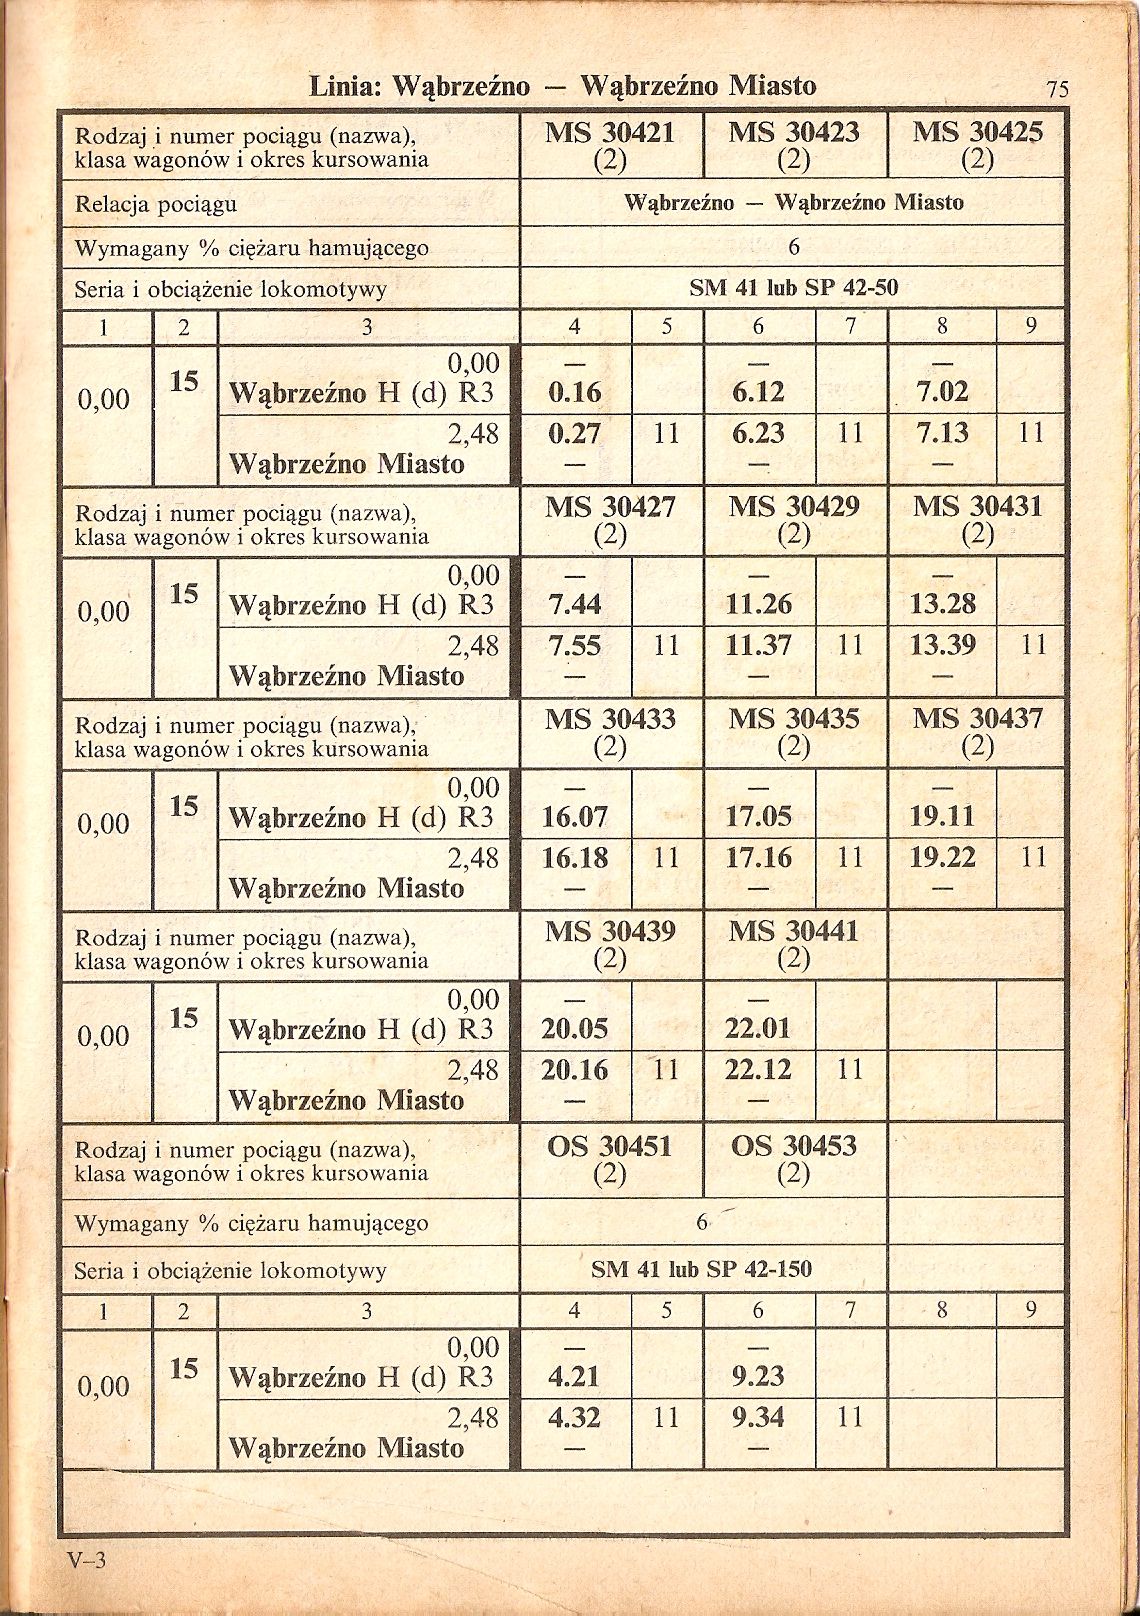 Linia: Wąbrzeźno — Wąbrzeźno Miasto 75
Rodzaj i numer pociągu (nazwa), klasa wagonów i okres kursowania MS 30421 (2) MS 30423 (2) MS 30425 (2)
Relacja pociągu Wąbrzeźno — Wąbrzeźno Miasto
Wymagany % ciężaru hamującego 6
Seria i obciążenie lokomotywy SM 41 lub SP 42-50
1 2 3 4 5 6 7 8 9
0,00 — — —
0,00 15 Wąbrzeźno H (d) R3 0.16 6.12 7.02
2,48 0.27 11 6.23 11 7.13 11
Wąbrzeźno Miasto — — —
Rodzaj i numer pociągu (nazwa), klasa wagonów i okres kursowania MS 30427 (2) MS 30429 (2) MS 30431 (2)
0,00 — — —
0,00 15 Wąbrzeźno H (d) R3 7.44 11.26 13.28
2,48 7.55 11 11.37 11 13.39 11
Wąbrzeźno Miasto — — —
Rodzaj i numer pociągu (nazwa), klasa wagonów i okres kursowania MS 30433 (2) MS 30435 (2) MS 30437 (2)
0,00 — — —
0,00 15 Wąbrzeźno H (d) R3 16.07 17.05 19.11
2,48 16.18 11 17.16 11 19.22 11
Wąbrzeźno Miasto — — —
Rodzaj i numer pociągu (nazwa), klasa wagonów i okres kursowania MS 30439 (2) MS 30441 (2)
0,00 — —
0,00 15 Wąbrzeźno H (d) R3 20.05 22.01
2,48 20.16 11 22.12 11
Wąbrzeźno Miasto — —
Rodzaj i numer pociągu (nazwa), klasa wagonów i okres kursowania OS 30451 (2) OS 30453 (2)
Wymagany % ciężaru hamującego 6
Seria i obciążenie lokomotywy SM 41 lub SP 42-150
1 2 3 4 5 6 7 8 9
0,00 — —
0,00 15 Wąbrzeźno H (d) R3 4.21 9.23
2,48 4.32 11 9.34 11
Wąbrzeźno Miasto — —
V–3